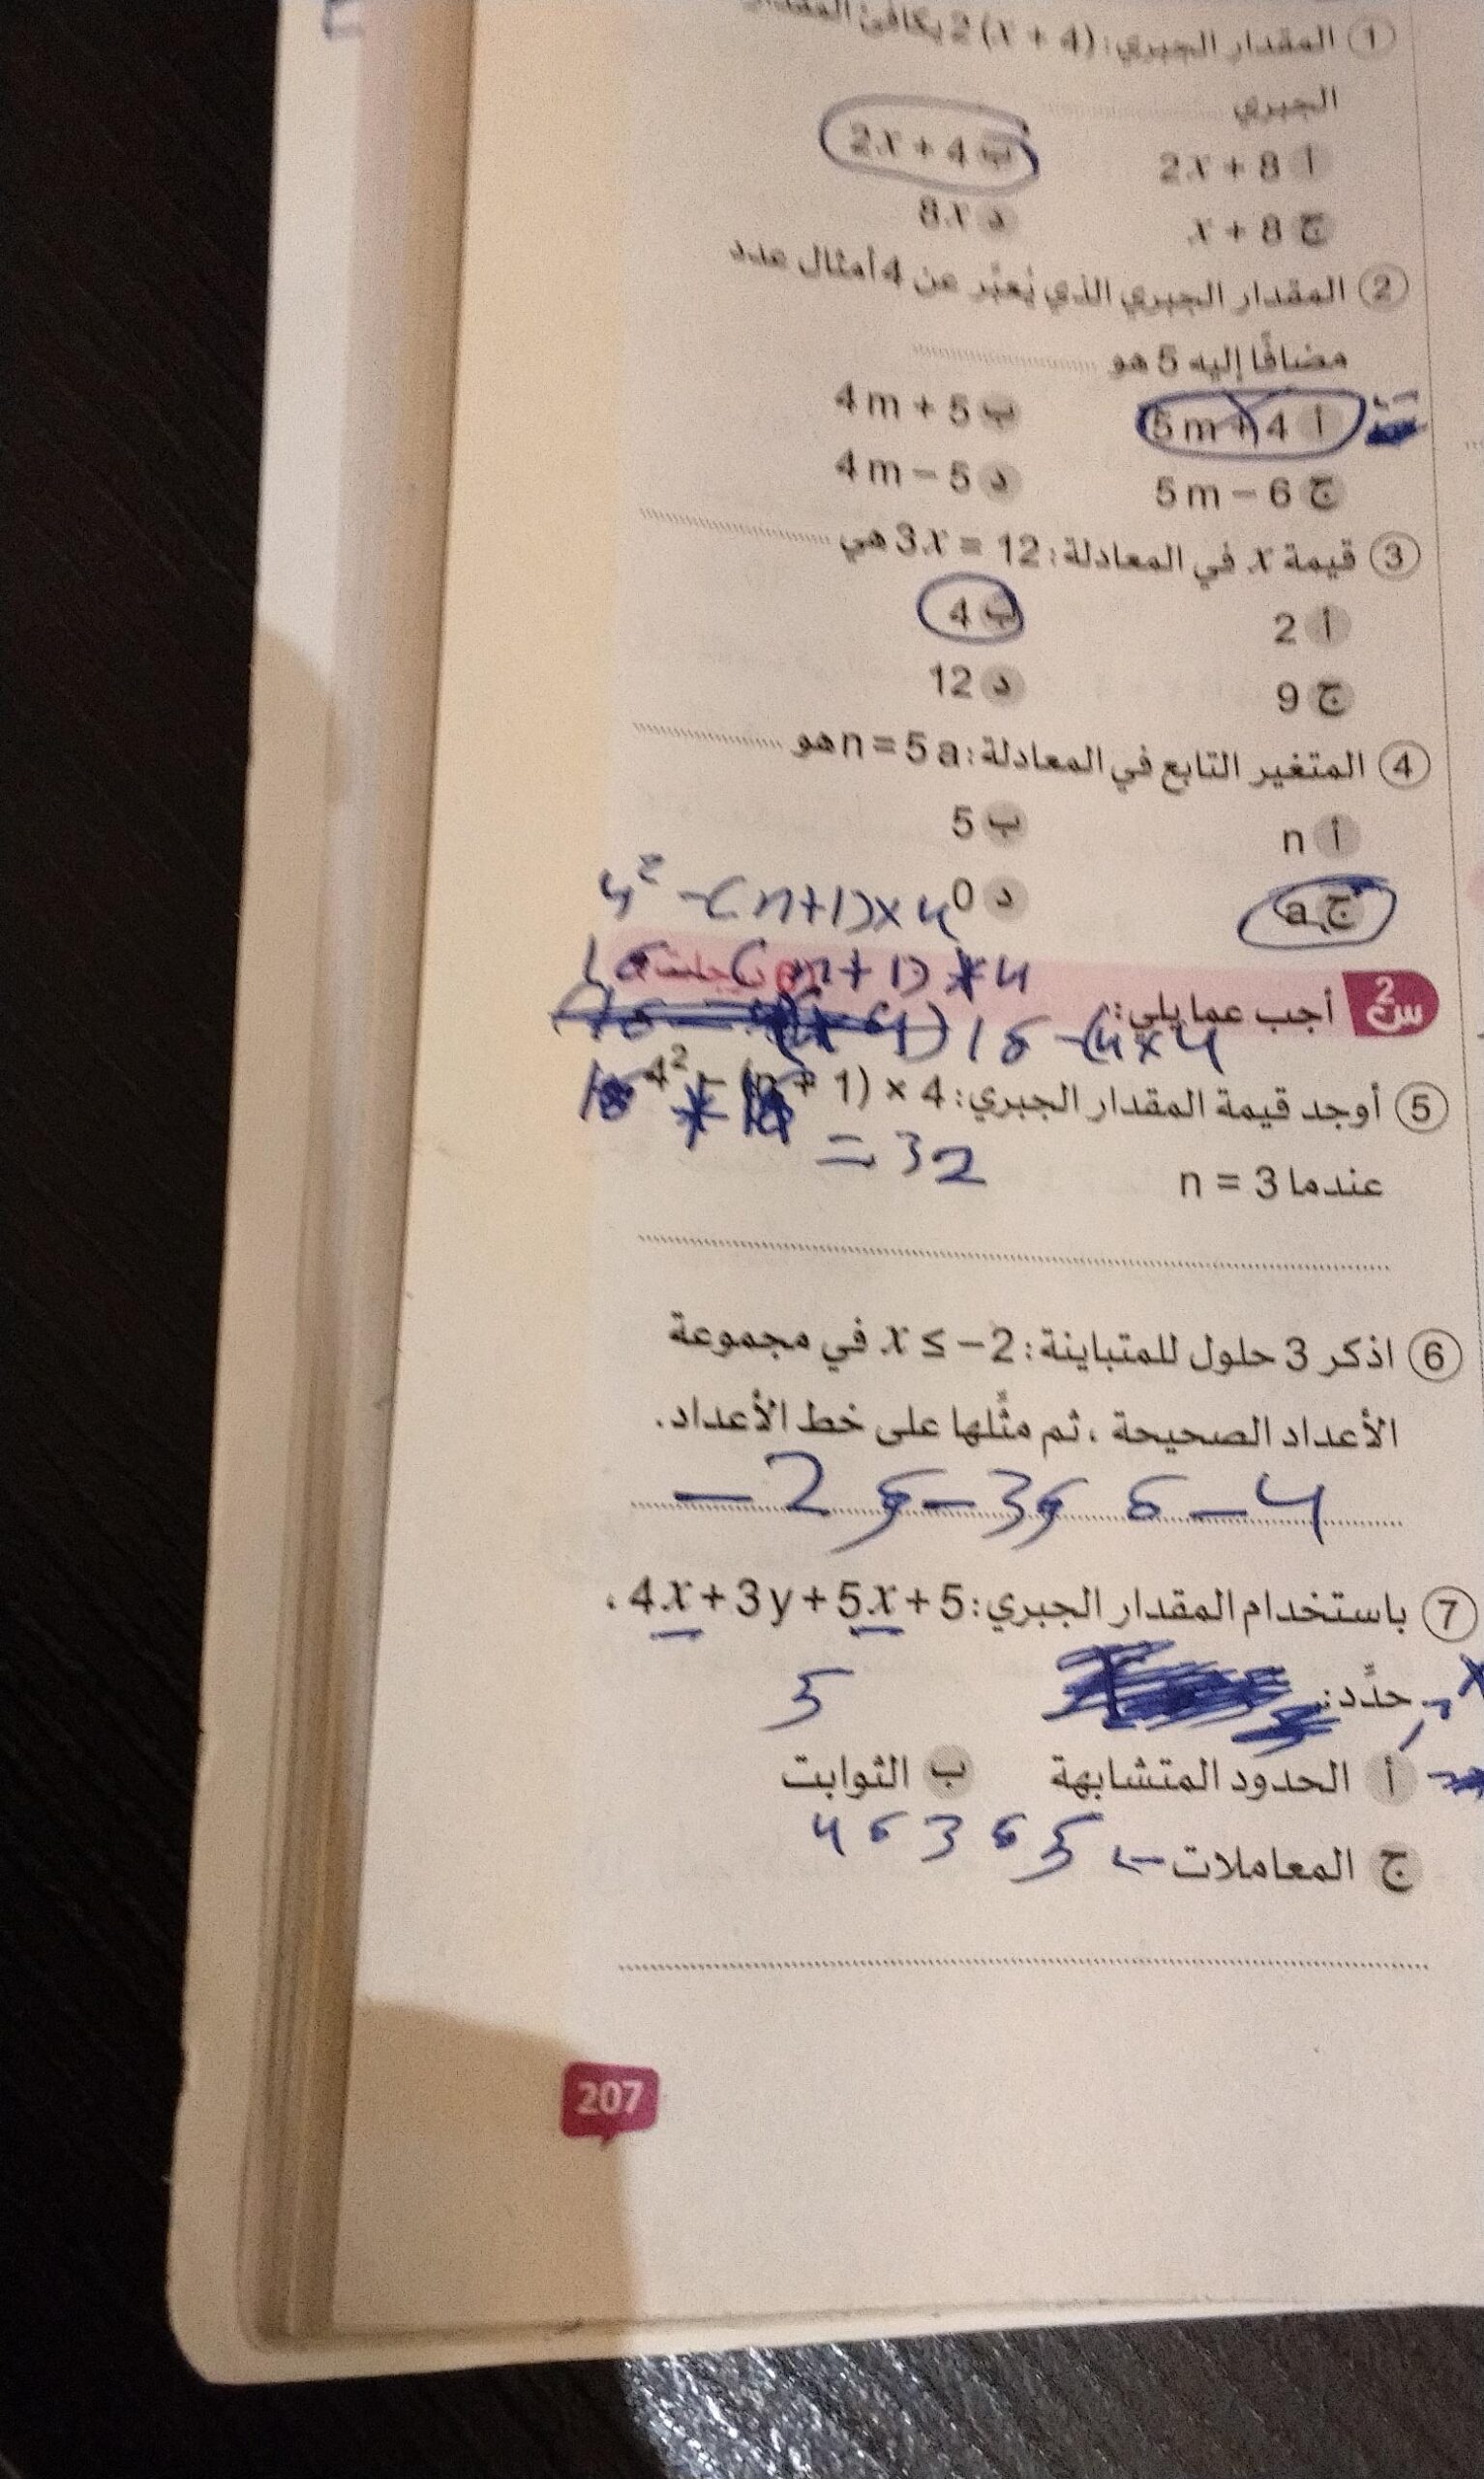 ① المقدار الجبري: 2(x + 4) يكافئ المقدار
الجبري
أ 2x + 8 ب 2x + 4
ج x + 8 د 8x
② المقدار الجبري الذي يُعبِّر عن 4 أمثال عدد
مضافًا إليه 5 هو
أ 5m + 4 ب 4m + 5
ج 5m − 6 د 4m − 5
③ قيمة x في المعادلة: 3x = 12 هي
أ 2 ب 4
ج 9 د 12
④ المتغير التابع في المعادلة: n = 5a هو
أ n ب 5
ج a د 0
4² -(n+1)×4
س2 أجب عما يلي:
16 -(4×4
⑤ أوجد قيمة المقدار الجبري: 4² − (n + 1) × 4
= 32
عندما n = 3
⑥ اذكر 3 حلول للمتباينة: x ≤ −2 في مجموعة
الأعداد الصحيحة ، ثم مثِّلها على خط الأعداد.
−2 , −3 , −4
⑦ باستخدام المقدار الجبري: 4x + 3y + 5x + 5 ،
حدِّد:
5
أ الحدود المتشابهة ب الثوابت
ج المعاملات 4 6 3 6 5
207